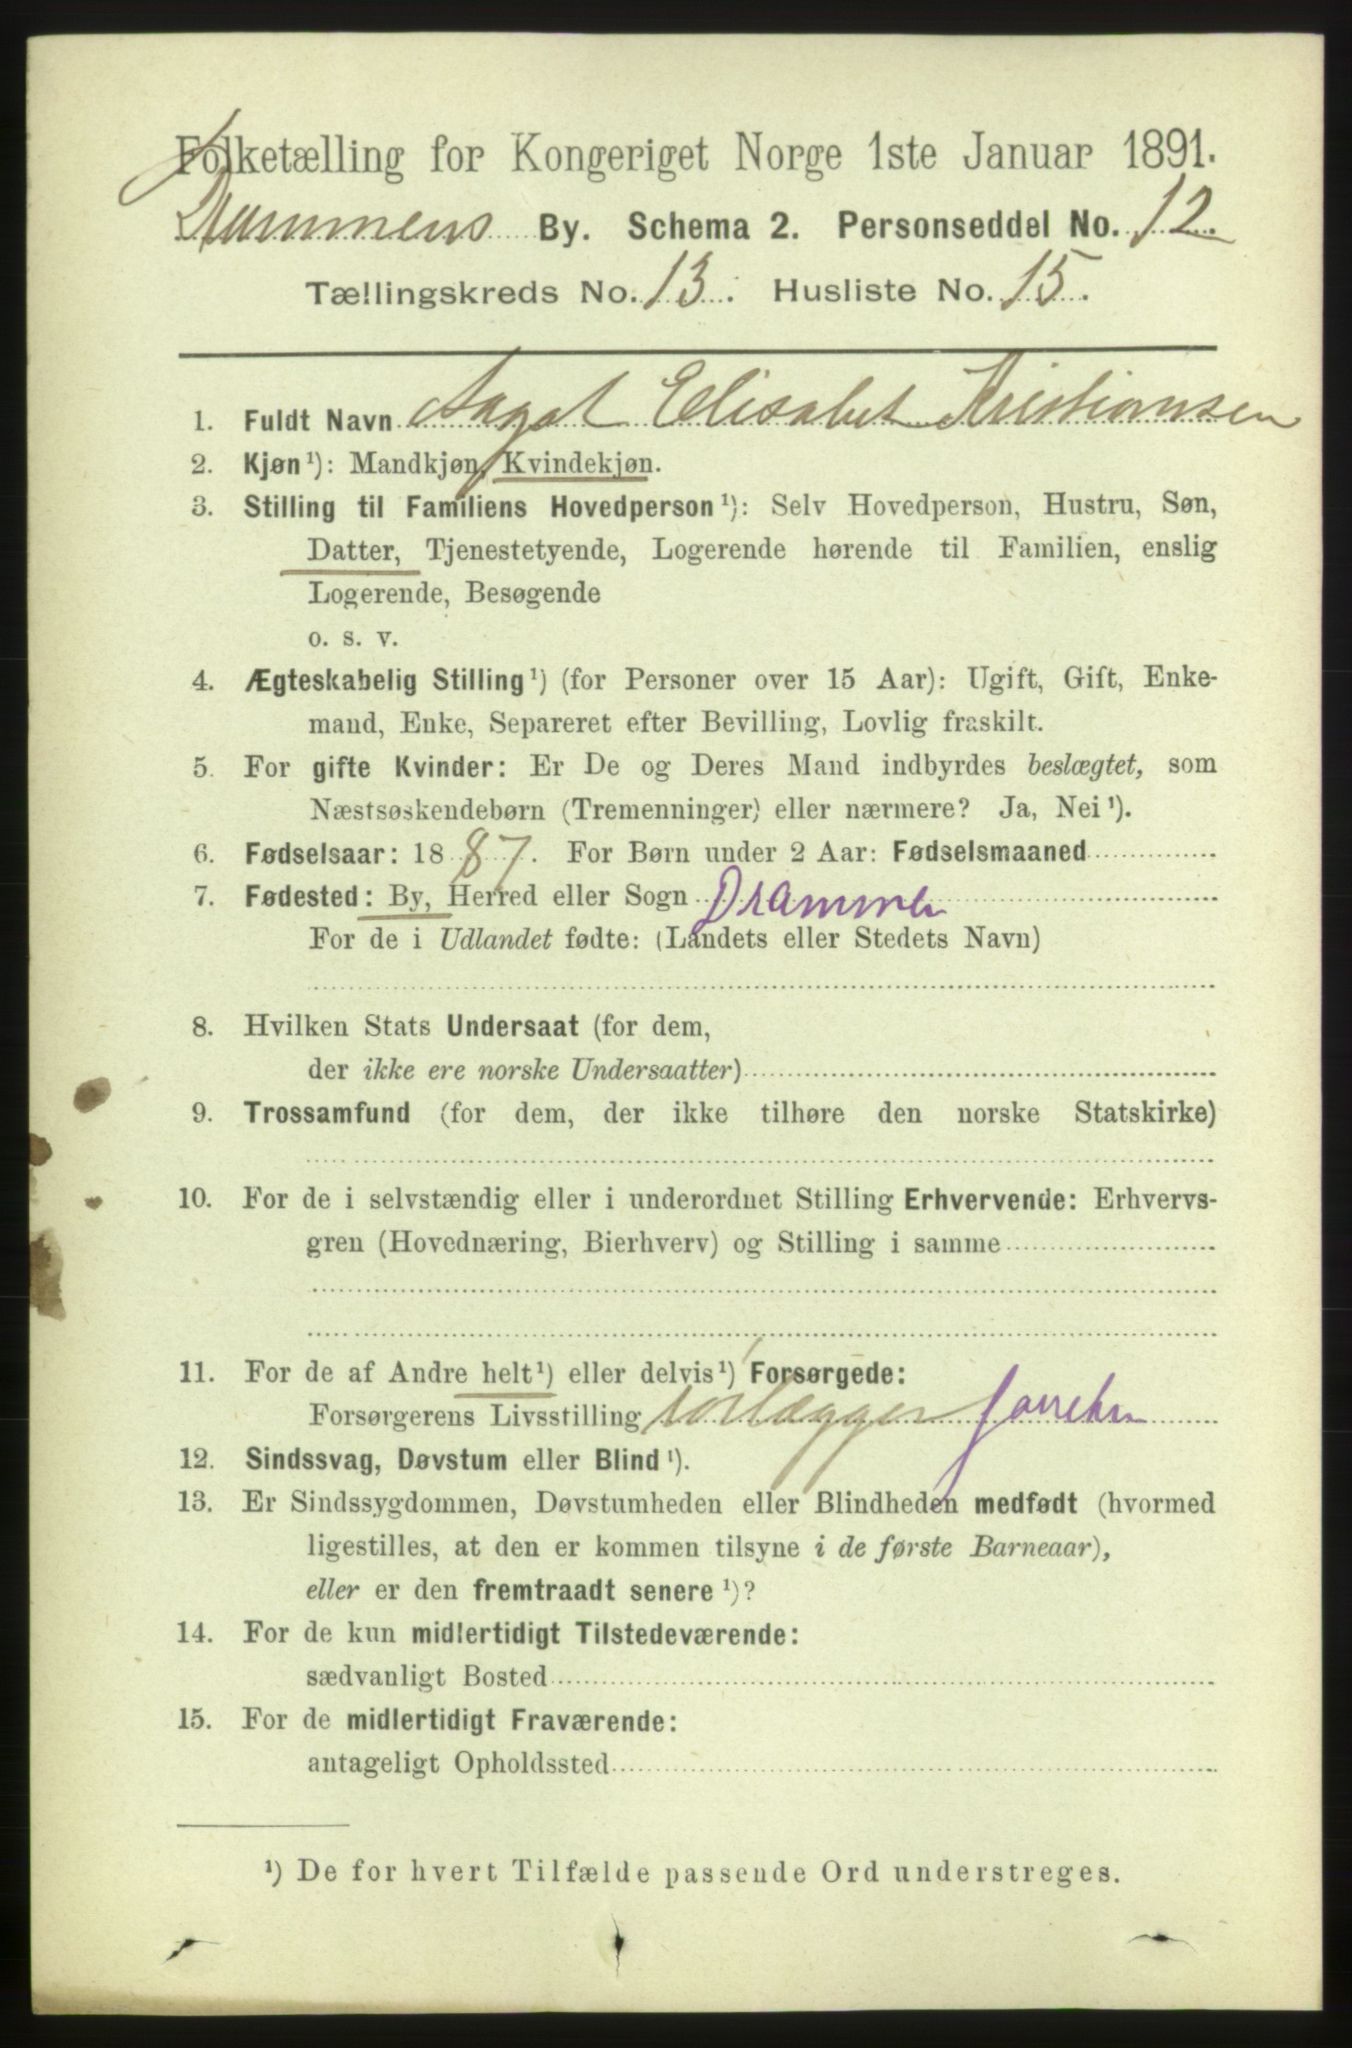 Folketælling for Kongeriget Norge 1ste Januar 1891.
Drammens By. Schema 2. Personseddel No. 12.
Tællingskreds No. 13. Husliste No. 15.
1. Fuldt Navn Aagot Elisabet Kristiansen
2. Kjøn¹): Mandkjøn, Kvindekjøn.
3. Stilling til Familiens Hovedperson¹): Selv Hovedperson, Hustru, Søn,
Datter, Tjenestetyende, Logerende hørende til Familien, enslig
Logerende, Besøgende
o. s. v.
4. Ægteskabelig Stilling¹) (for Personer over 15 Aar): Ugift, Gift, Enke-
mand, Enke, Separeret efter Bevilling, Lovlig fraskilt.
5. For gifte Kvinder: Er De og Deres Mand indbyrdes beslægtet, som
Næstsøskendebørn (Tremenninger) eller nærmere? Ja, Nei¹).
6. Fødselsaar: 1887. For Børn under 2 Aar: Fødselsmaaned
7. Fødested: By, Herred eller Sogn Drammen
For de i Udlandet fødte: (Landets eller Stedets Navn)
8. Hvilken Stats Undersaat (for dem,
der ikke ere norske Undersaatter)
9. Trossamfund (for dem, der ikke tilhøre den norske Statskirke)
10. For de i selvstændig eller i underordnet Stilling Erhvervende: Erhvervs-
gren (Hovednæring, Bierhverv) og Stilling i samme
11. For de af Andre helt¹) eller delvis¹) Forsørgede:
Forsørgerens Livsstilling
12. Sindssvag, Døvstum eller Blind¹).
13. Er Sindssygdommen, Døvstumheden eller Blindheden medfødt (hvormed
ligestilles, at den er kommen tilsyne i de første Barneaar),
eller er den fremtraadt senere¹)?
14. For de kun midlertidigt Tilstedeværende:
sædvanligt Bosted
15. For de midlertidigt Fraværende:
antageligt Opholdssted
¹) De for hvert Tilfælde passende Ord understreges.